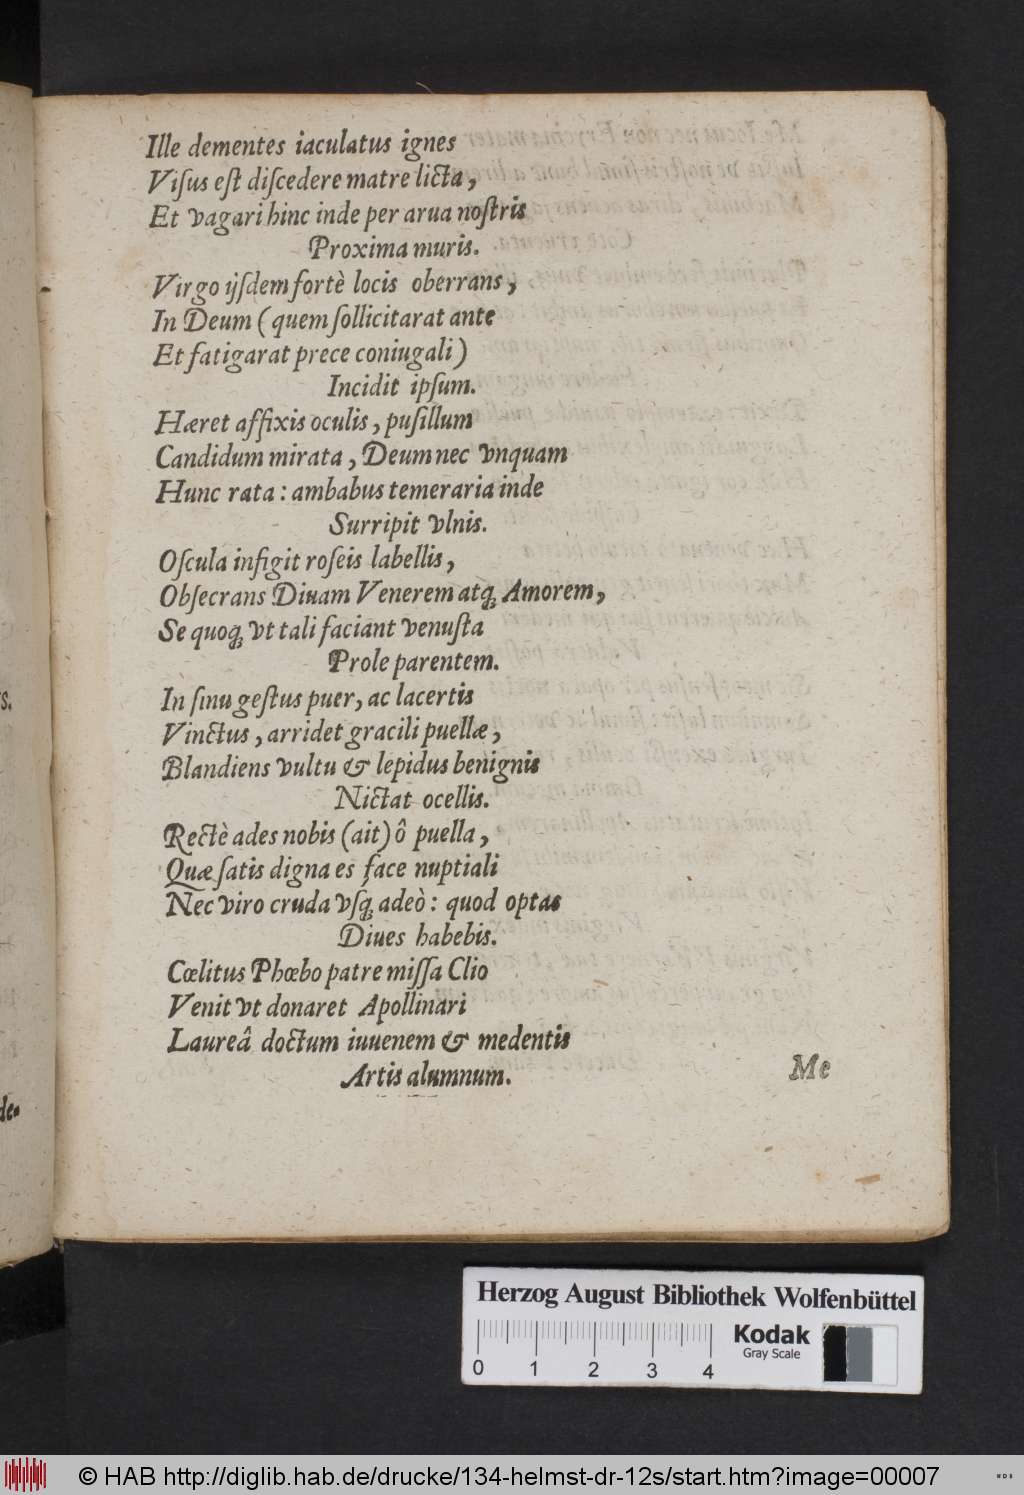 Ille dementes iaculatus ignes
Viſus eſt diſcedere matre licta,
Et vagari hinc inde per arua noſtris
Proxima muris.
Virgo ijſdem fortè locis oberrans,
In Deum (quem ſollicitarat ante
Et fatigarat prece coniugali)
Incidit ipſum.
Hæret affixis oculis, puſillum
Candidum mirata, Deum nec vnquam
Hunc rata: ambabus temeraria inde
Surripit vlnis.
Oſcula infigit roſeis labellis,
Obſecrans Diuam Venerem atq́; Amorem,
Se quoq́; vt tali faciant venuſta
Prole parentem.
In ſinu geſtus puer, ac lacertis
Vinctus, arridet gracili puellæ,
Blandiens vultu & lepidus benignis
Nictat ocellis.
Rectè ades nobis (ait) ô puella,
Quæ ſatis digna es face nuptiali
Nec viro cruda vſq́; adeò: quod optas
Diues habebis.
Cœlitus Phœbo patre miſſa Clio
Venit vt donaret Apollinari
Laureâ doctum iuuenem & medentis
Artis alumnum.
Me
de-
Herzog August Bibliothek Wolfenbüttel
0 1 2 3 4
Kodak
Gray Scale
© HAB http://diglib.hab.de/drucke/134-helmst-dr-12s/start.htm?image=00007